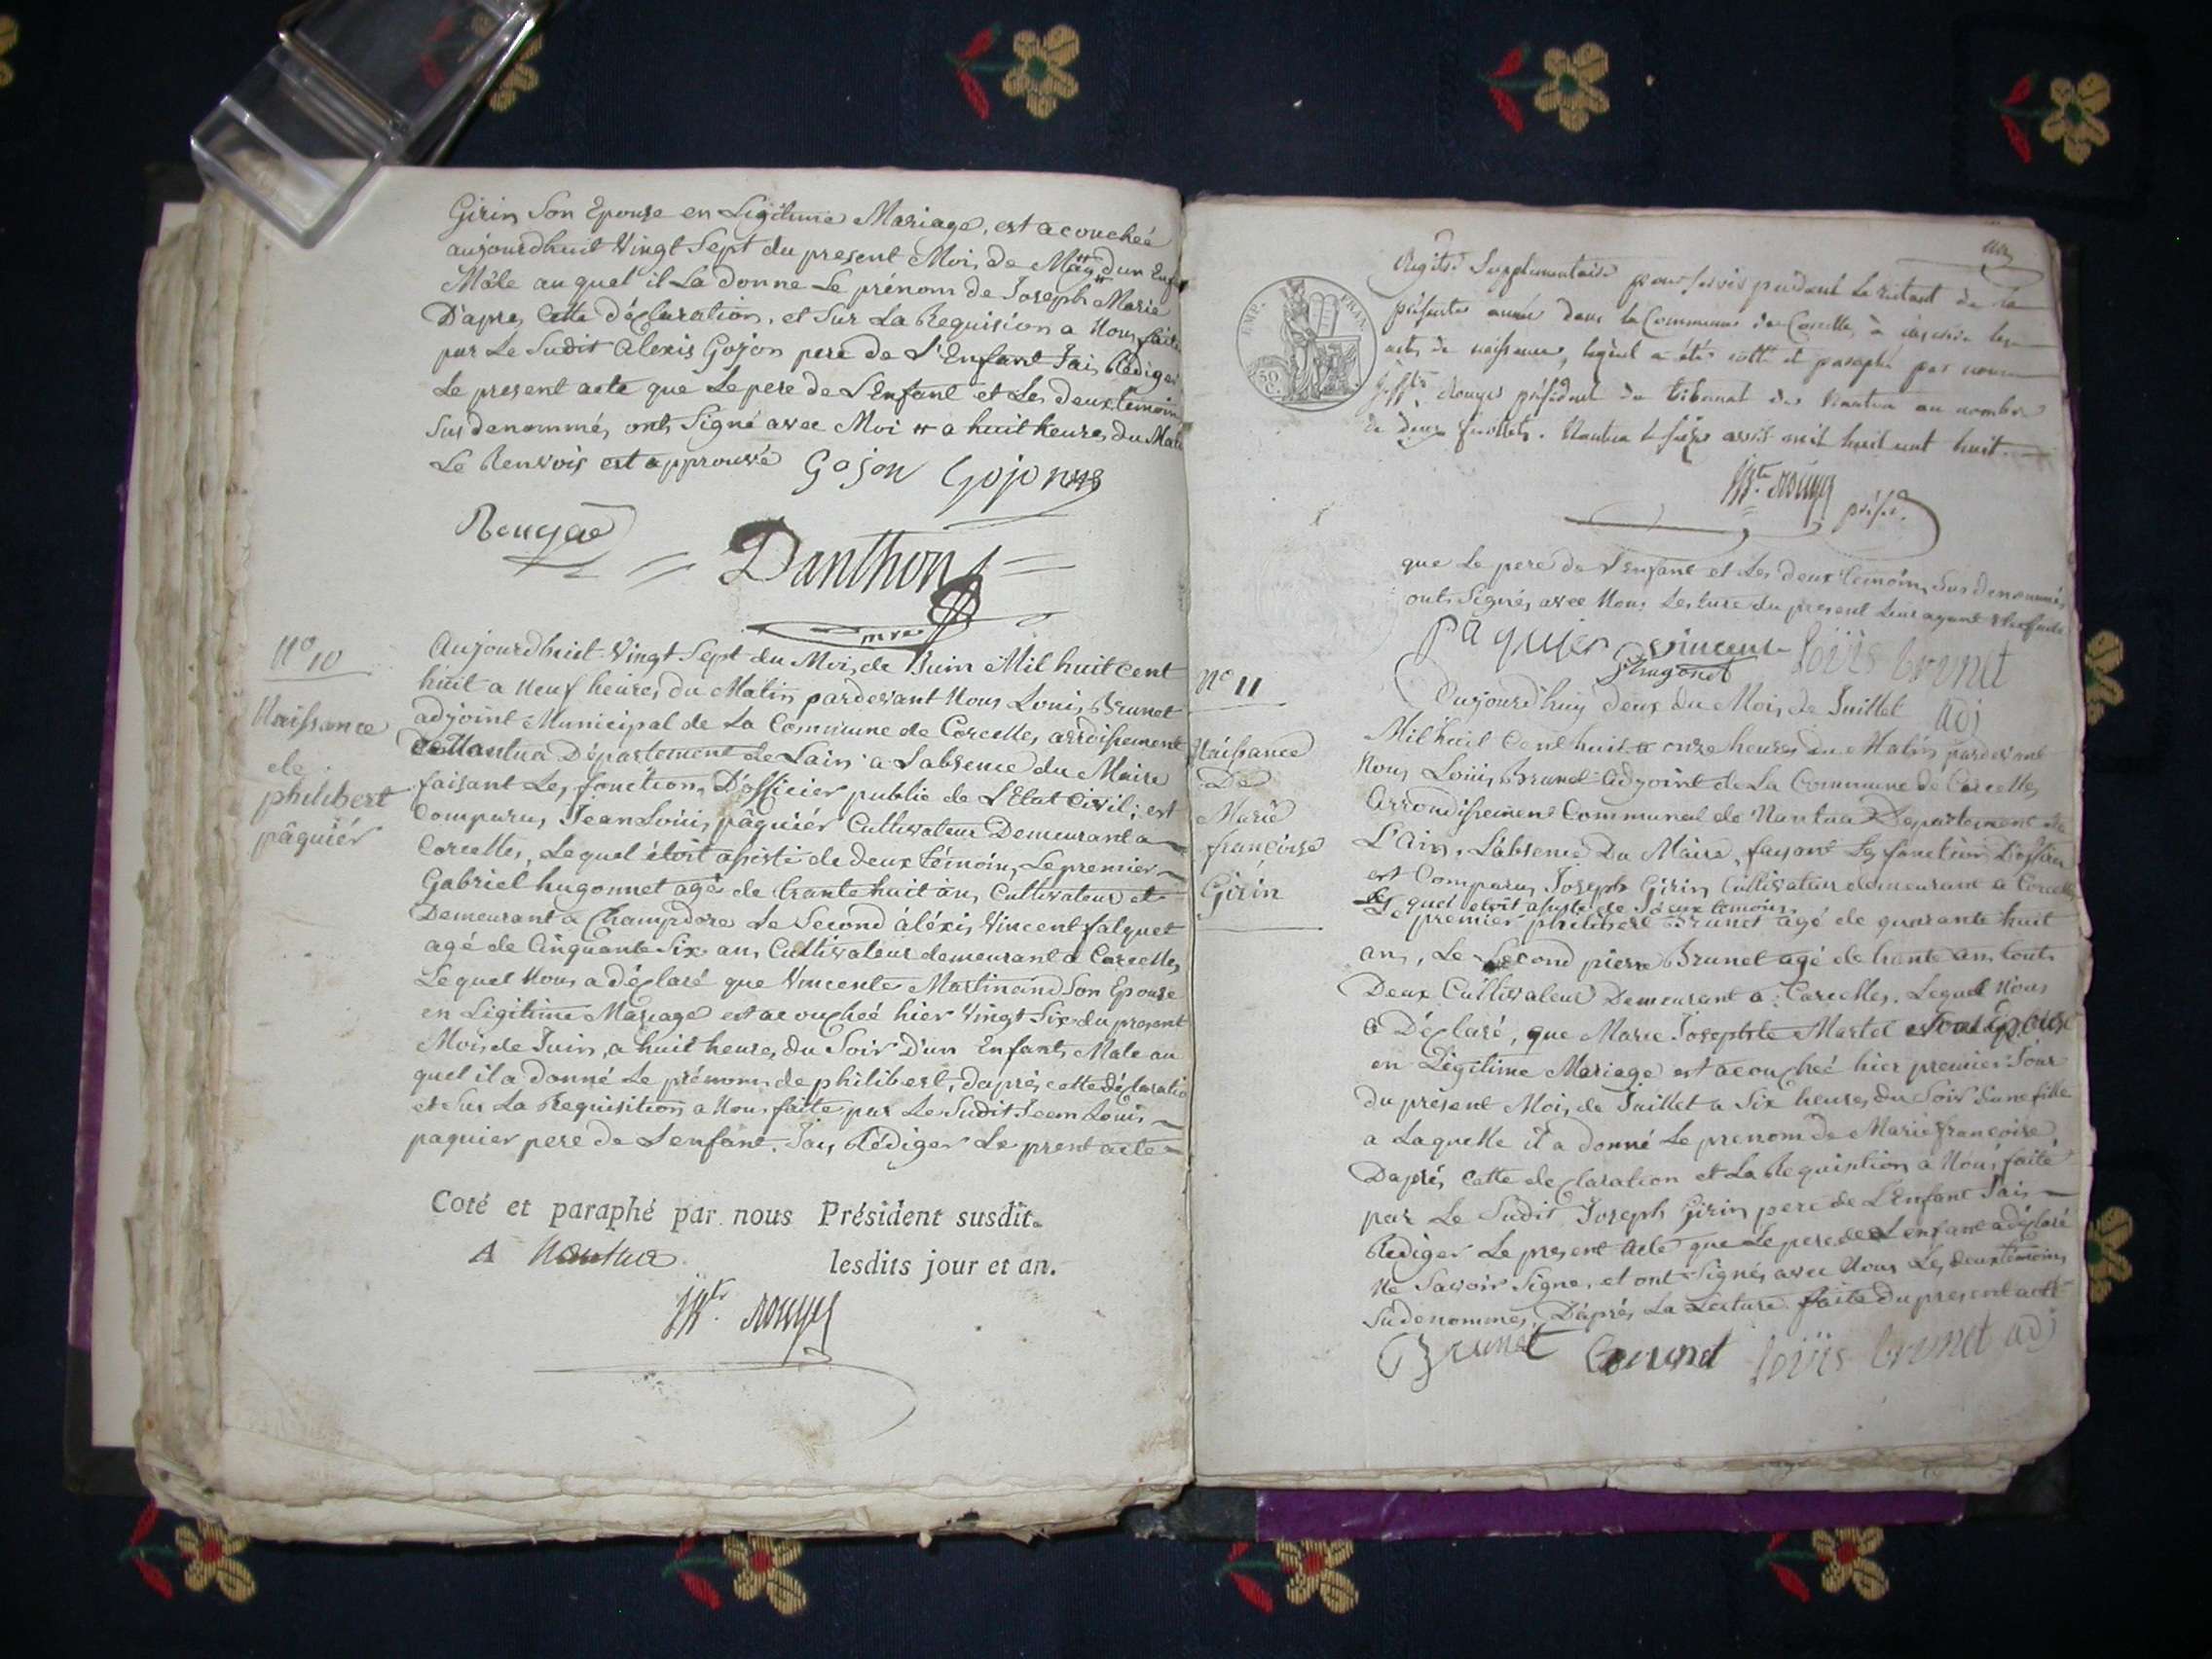 Girin Son Epouse en Legitime Mariage, est acouchée
aujourdhuit Vingt Sept du present Mois de May dun Enf
Mâle auquel il La donne Le prénom de Joseph Marie
D'apres Cette déclaration, et Sur La Requision a Nous faite
par Le Sudit Alexis Gojon pere de L'Enfant Jais Rédiger
Le present acte que Le pere de L'Enfant et Les deux temoin
Susdenommés onts Signé avec Moi a huit heures du Mati
Le Renvois est approuvé Gojon Gojon
Rougde
Danthon
mre
N° 10
Naissance
de
philibert
pâquiér
Aujourdhuit Vingt Sept du Mois de Juin Mil huit Cent
huit a Neuf heures du Matin pardevant Nous Louis Brunet
adjoint Municipal de La Commune de Corcelles, arrdissement
de Nantua Département de Lain a Labsence du Maire
faisant Les fonctions D'officier public de L'Etat Civil; est
Comparus Jean Louis pâquiér Cultivateur Demeurant a
Corcelles, Lequel étoit asisté de deux témoins, Le premier
Gabriel hugonnet agé de trante huit ans, Cultivateur et
Demeurant a Champdore Le Second àléxis Vincent falquet
agé de Cinquante Six ans Cultivateur demeurant a Corcelles
Lequel Nous a déclaré que Vincente Martinand Son Epouse
en Ligitime Mariage est acouchéé hier Vingt Six du present
Mois de Juin, a huit heures du Soir D'un Enfants Male au
quel il a donné Le prénom de philibert, daprés cette déclaratio
et Sur La Requisition a Nous faite par Le Sudit Jean Louis
paquier pere de Lenfant, Jais Rédiger Le prent acte
Coté et paraphé par nous Président susdit.
A Nantua lesdits jour et an.
Jh.te rouyer
EMP. FRAN.
Registre Supplementaire pour servir pendant le restant de la
présente année dans la Commune de Corcelle, à inscrire les
actes de naissance, lequel a été cotté et paraphé par nous
Jh.te Rouyer président du tribunal de Nantua au nombre
de deux feuillets. Nantua le seize avril mil huit cent huit.
Jh.te rouyer
présid.
que Le pere de L'enfant et Les deux temoins Sus denommés
onts Signés avec Nous Lecture du present Leur ayant Etéfaite
pâquier vincent loüis brunet
hugonet adj
N° 11
Naissance
De
Marie
françoise
Girin
Aujourd'huy deux du Mois de Juillet
Mil huit Cent huit a onze heures du Matin pardevant
Nous Louis Brunet adjoint de La Commune de Corcelles
Arrondissement Communal de Nantua Departement de
L'Ain, Labsence Du Maire, faisant Les fonctions D'officier
est Comparus Joseph Girin Cultivateur demeurant a Corcelles
Lequel etoit assisté de deux temoins
Le premier philibert Brunet agé de quarante huit
ans, Le Second pierre Brunet agé de trente ans touts
Deux Cultivateur Demeurant a Corcelles. Lequel Nous
a Déclaré, que Marie Josephte Martel Son Epouse
en Légitime Mariage est acouchéé hier premier Jour
du présent Mois de Juillet a Six heures du Soir dune fille
a Laquelle il a donné Le prenom de Marie françoise
Daprés Cette déclaration et La Requisition a Nous faite
par Le Sudit Joseph Girin pere de L'Enfant Jais
Rédiger Le present acte que Le pere de L'enfant a déclaré
Ne Savoir Signe, et ont Signés avec Nous Les deux temoins
Sudenommés, Daprés La Lecture faite du present acte
Brunet brunet loüis brunet adj